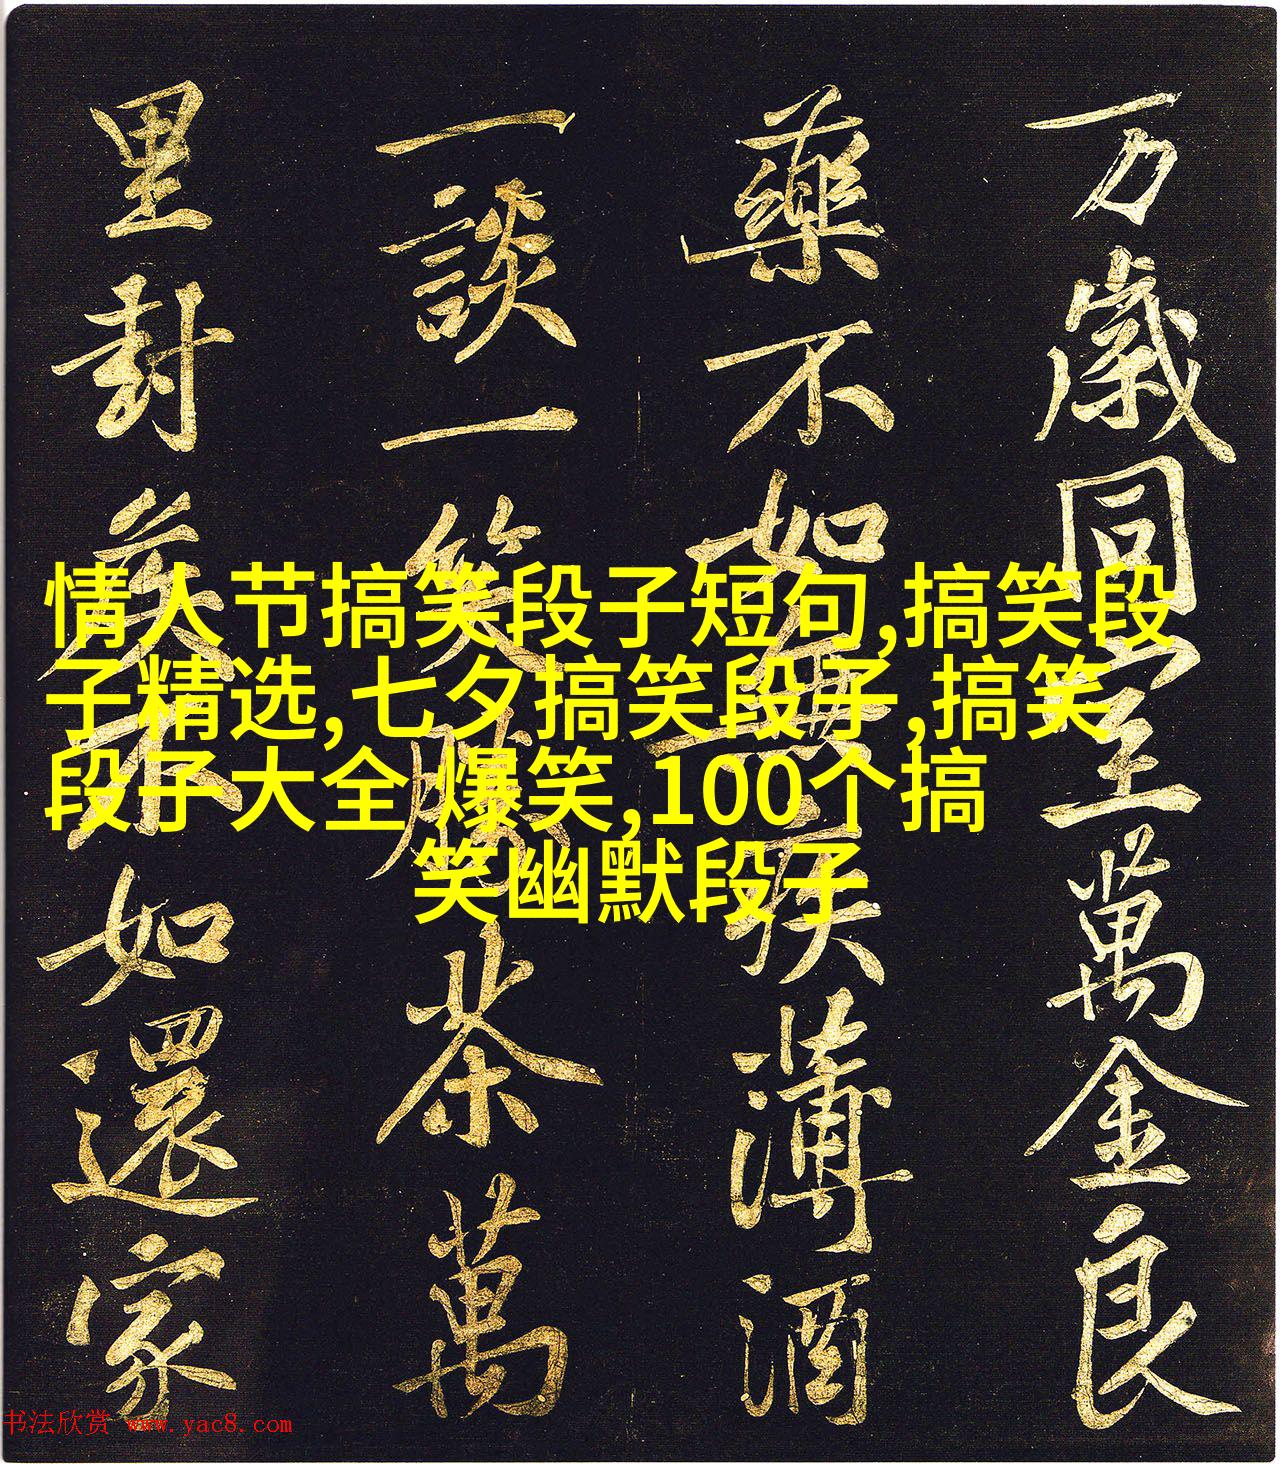 万歲同萬金良
藥不如無疾薄酒
一談一笑勝茶萬
里封侯不如還家
情人节搞笑段子短句,搞笑段
子精选,七夕搞笑段子,搞笑
段子大全 爆笑,100个搞
笑幽默段子
书法欣赏 www.yac8.com